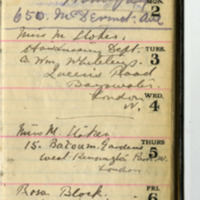 MON. 2
650. McDermot. Ave
Miss M. Stokes.
Dept.
TUES. 3
C/o Wm. Whiteleys
Queens Road
Bayswater
WED. 4
London
W.
Miss M.
THURS 5
15. Batoum Gardens
West Kensington Park. W.
London
FRI. 6
Rosa Block.